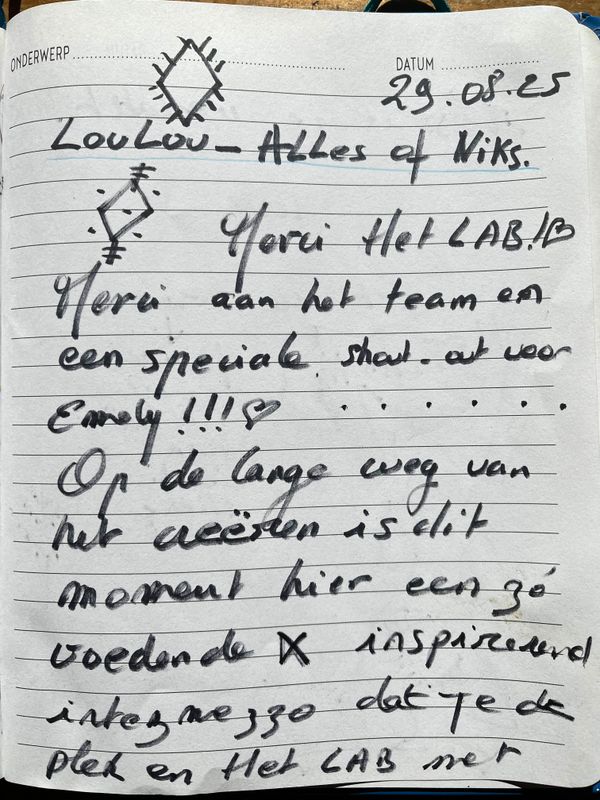 ONDERWERP
DATUM
29.08.25
LOULOU - ALLES of NIKS.
Merci Het LAB!
Merci aan het team en
een speciale shout-out voor
Emmely!!!
Op de lange weg van
het creëeren is dit
moment hier een zó
voedende inspirerend
intermezzo dat je de
plek en Het LAB met